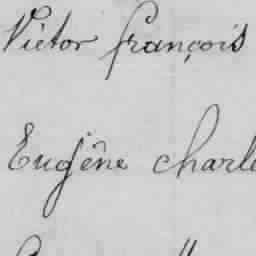 Victor françois
Eugêne charle